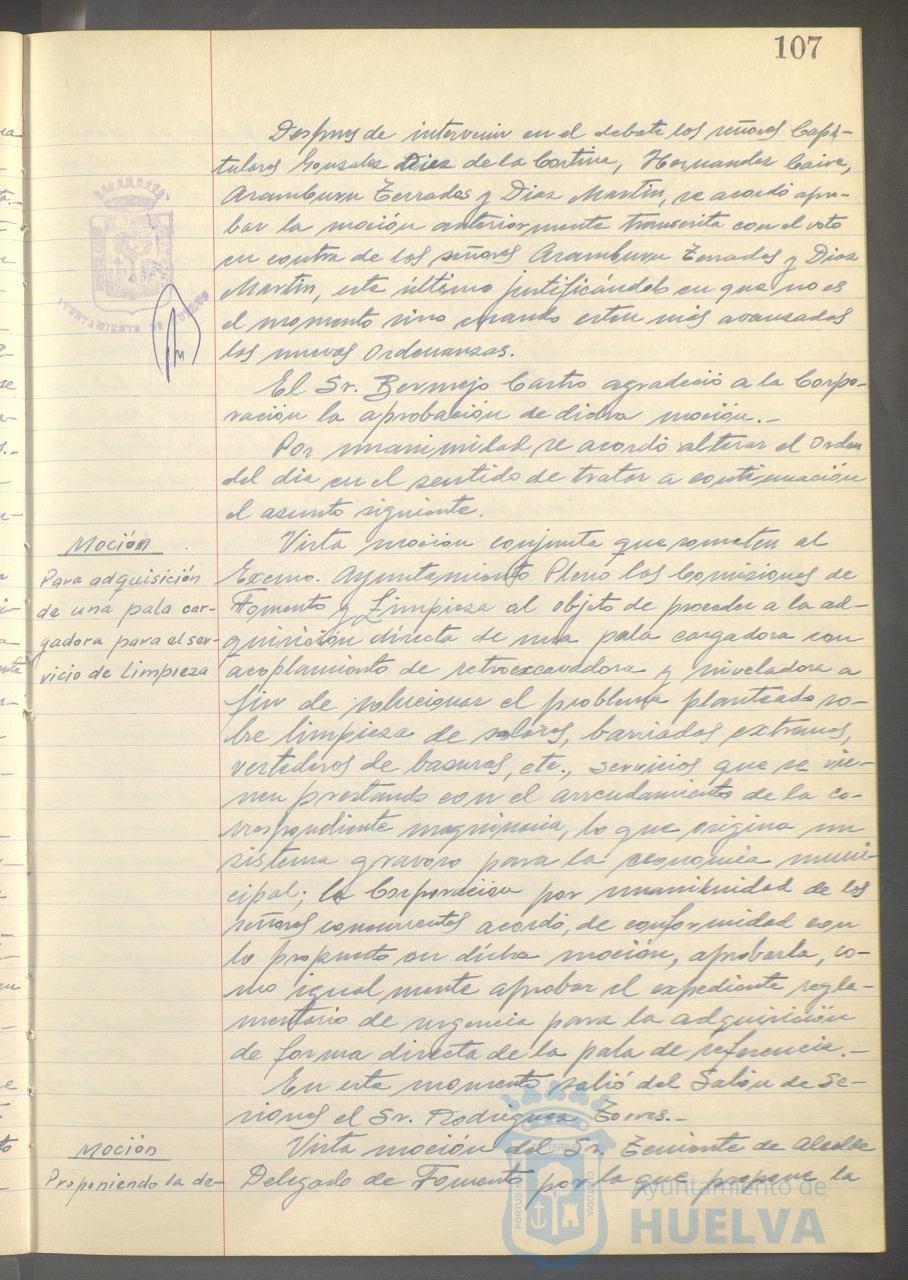 107
Despues de intervenir en el debate los señores Capi-
tulares Gonzalez Diez de la Cortina, Hernandez Caire,
Aramburu Terrades y Diaz Martin, se acordó apro-
bar la moción anteriormente transcrita con el voto
en contra de los señores Aramburu Terrades y Diaz
Martin, este ultimo justificándolo en que no es
el momento sino cuando esten más avanzadas
las nuevas Ordenanzas.
El Sr. Bermejo Castro agradeció a la Corpo-
ración la aprobación de dicha moción.-
Por unanimidad se acordó alterar el Orden
del dia en el sentido de tratar a continuación
el asunto siguiente.
Moción
Para adquisición
de una pala car-
gadora para el ser-
vicio de limpieza
Vista moción conjunta que someten al
Excmo. Ayuntamiento Pleno las Comisiones de
Fomento y Limpieza al objeto de proceder a la ad-
quisición directa de una pala cargadora con
acoplamiento de retroexcavadora y niveladora a
fin de solucionar el problema planteado so-
bre limpieza de solares, barriadas extremas,
vertederos de basuras, etc., servicios que se vie-
nen prestando con el arrendamiento de la co-
rrespondiente maquinaria, lo que origina un
sistema gravoso para la economia muni-
cipal; la Corporación por unanimidad de los
señores concurrentes acordó, de conformidad con
lo propuesto en dicha moción, aprobarla, co-
mo igualmente aprobar el expediente regla-
mentario de urgencia para la adquisición
de forma directa de la pala de referencia.-
En este momento salió del Salón de Se-
siones el Sr. Rodriguez Torres.-
Moción
Proponiendo la de-
Vista moción del Sr. Teniente de Alcalde
Delegado de Fomento por la que propone la
AYUNTAMIENTO DE HUELVA
PORTUS
CUSTODIA
Ayuntamiento de
HUELVA